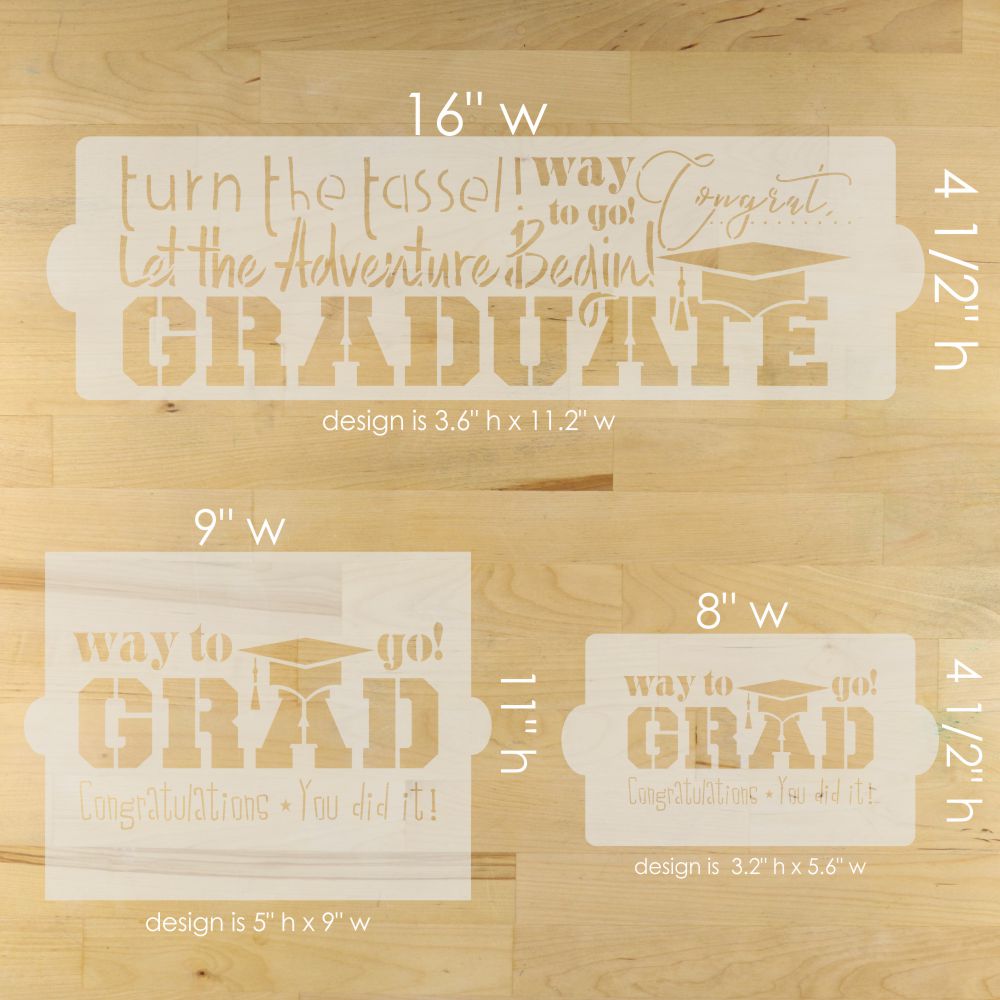 16" w
turn the tassel!
way
to go!
Congrat.
Let the Adventure Begin!
GRADUATE
4 1/2" h
design is 3.6" h x 11.2" w
9" w
way to go!
GRAD
Congratulations ★ You did it!
11" h
design is 5" h x 9" w
8" w
way to go!
GRAD
Congratulations ★ You did it!
4 1/2" h
design is 3.2" h x 5.6" w